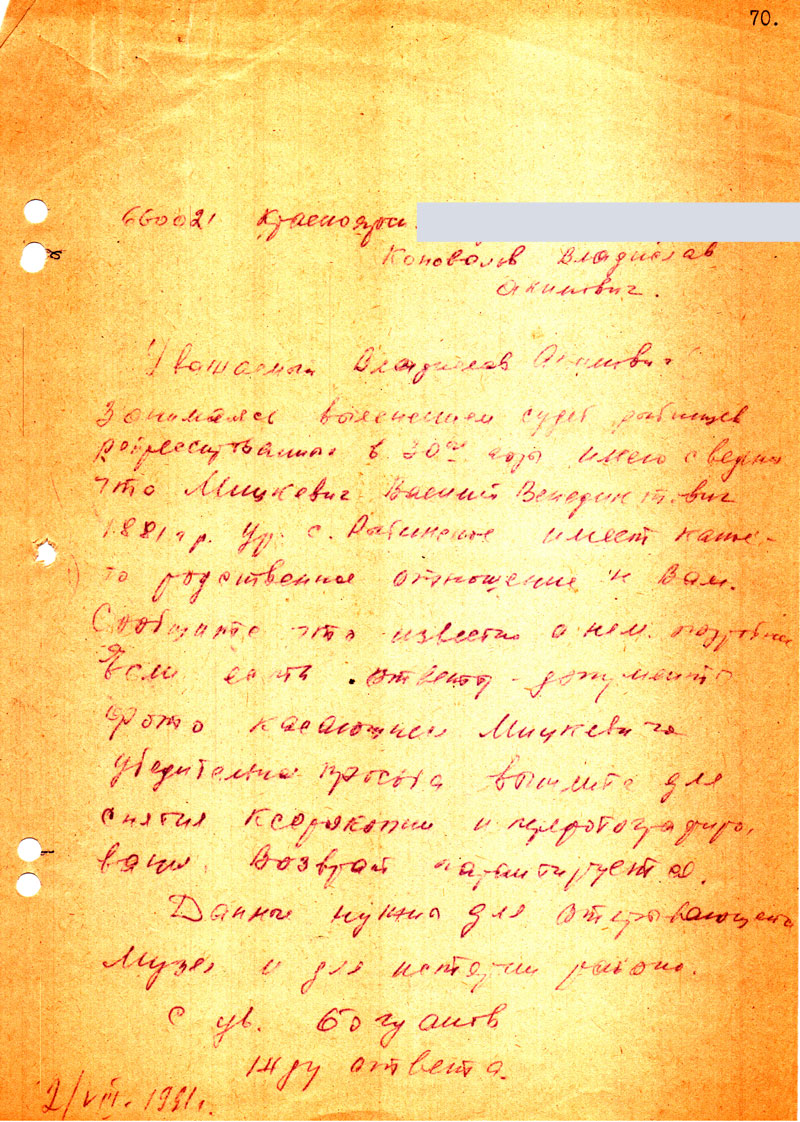 70.
660021 Красноярск
Коновалов Владислав
Акимович.
Уважаемый Владислав Акимович!
Занимаясь выяснением судеб рыбинцев
репрессированных в 30ые годы имею сведения
что Мицкевич Василий Венедиктович
1881 г р. Ур. с. Рыбинское имеет какое-
то родственное отношение к Вам.
Сообщите что известно о нем подробнее
Если есть документы
фото касающиеся Мицкевича
убедительная просьба вышлите для
снятия ксерокопии и перефотографиро
вания. Возврат гарантируется.
Данные нужны для открывающегося
музея и для истории района.
С ув. Богуанов
Жду ответа.
2/VIII. 1991г.